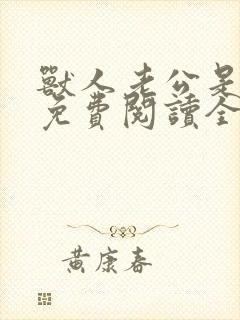 獸人老公是
免費閱讀全
黃康春